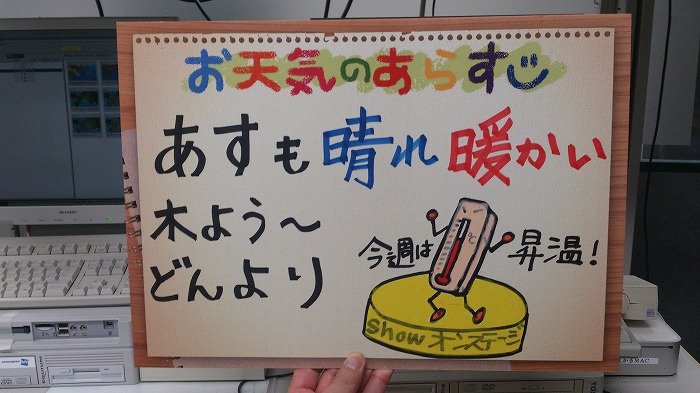 お天気のあらすじ
あすも晴れ暖かい
木よう～
どんより
今週は昇温！
℃
Showオンステージ
SHARP